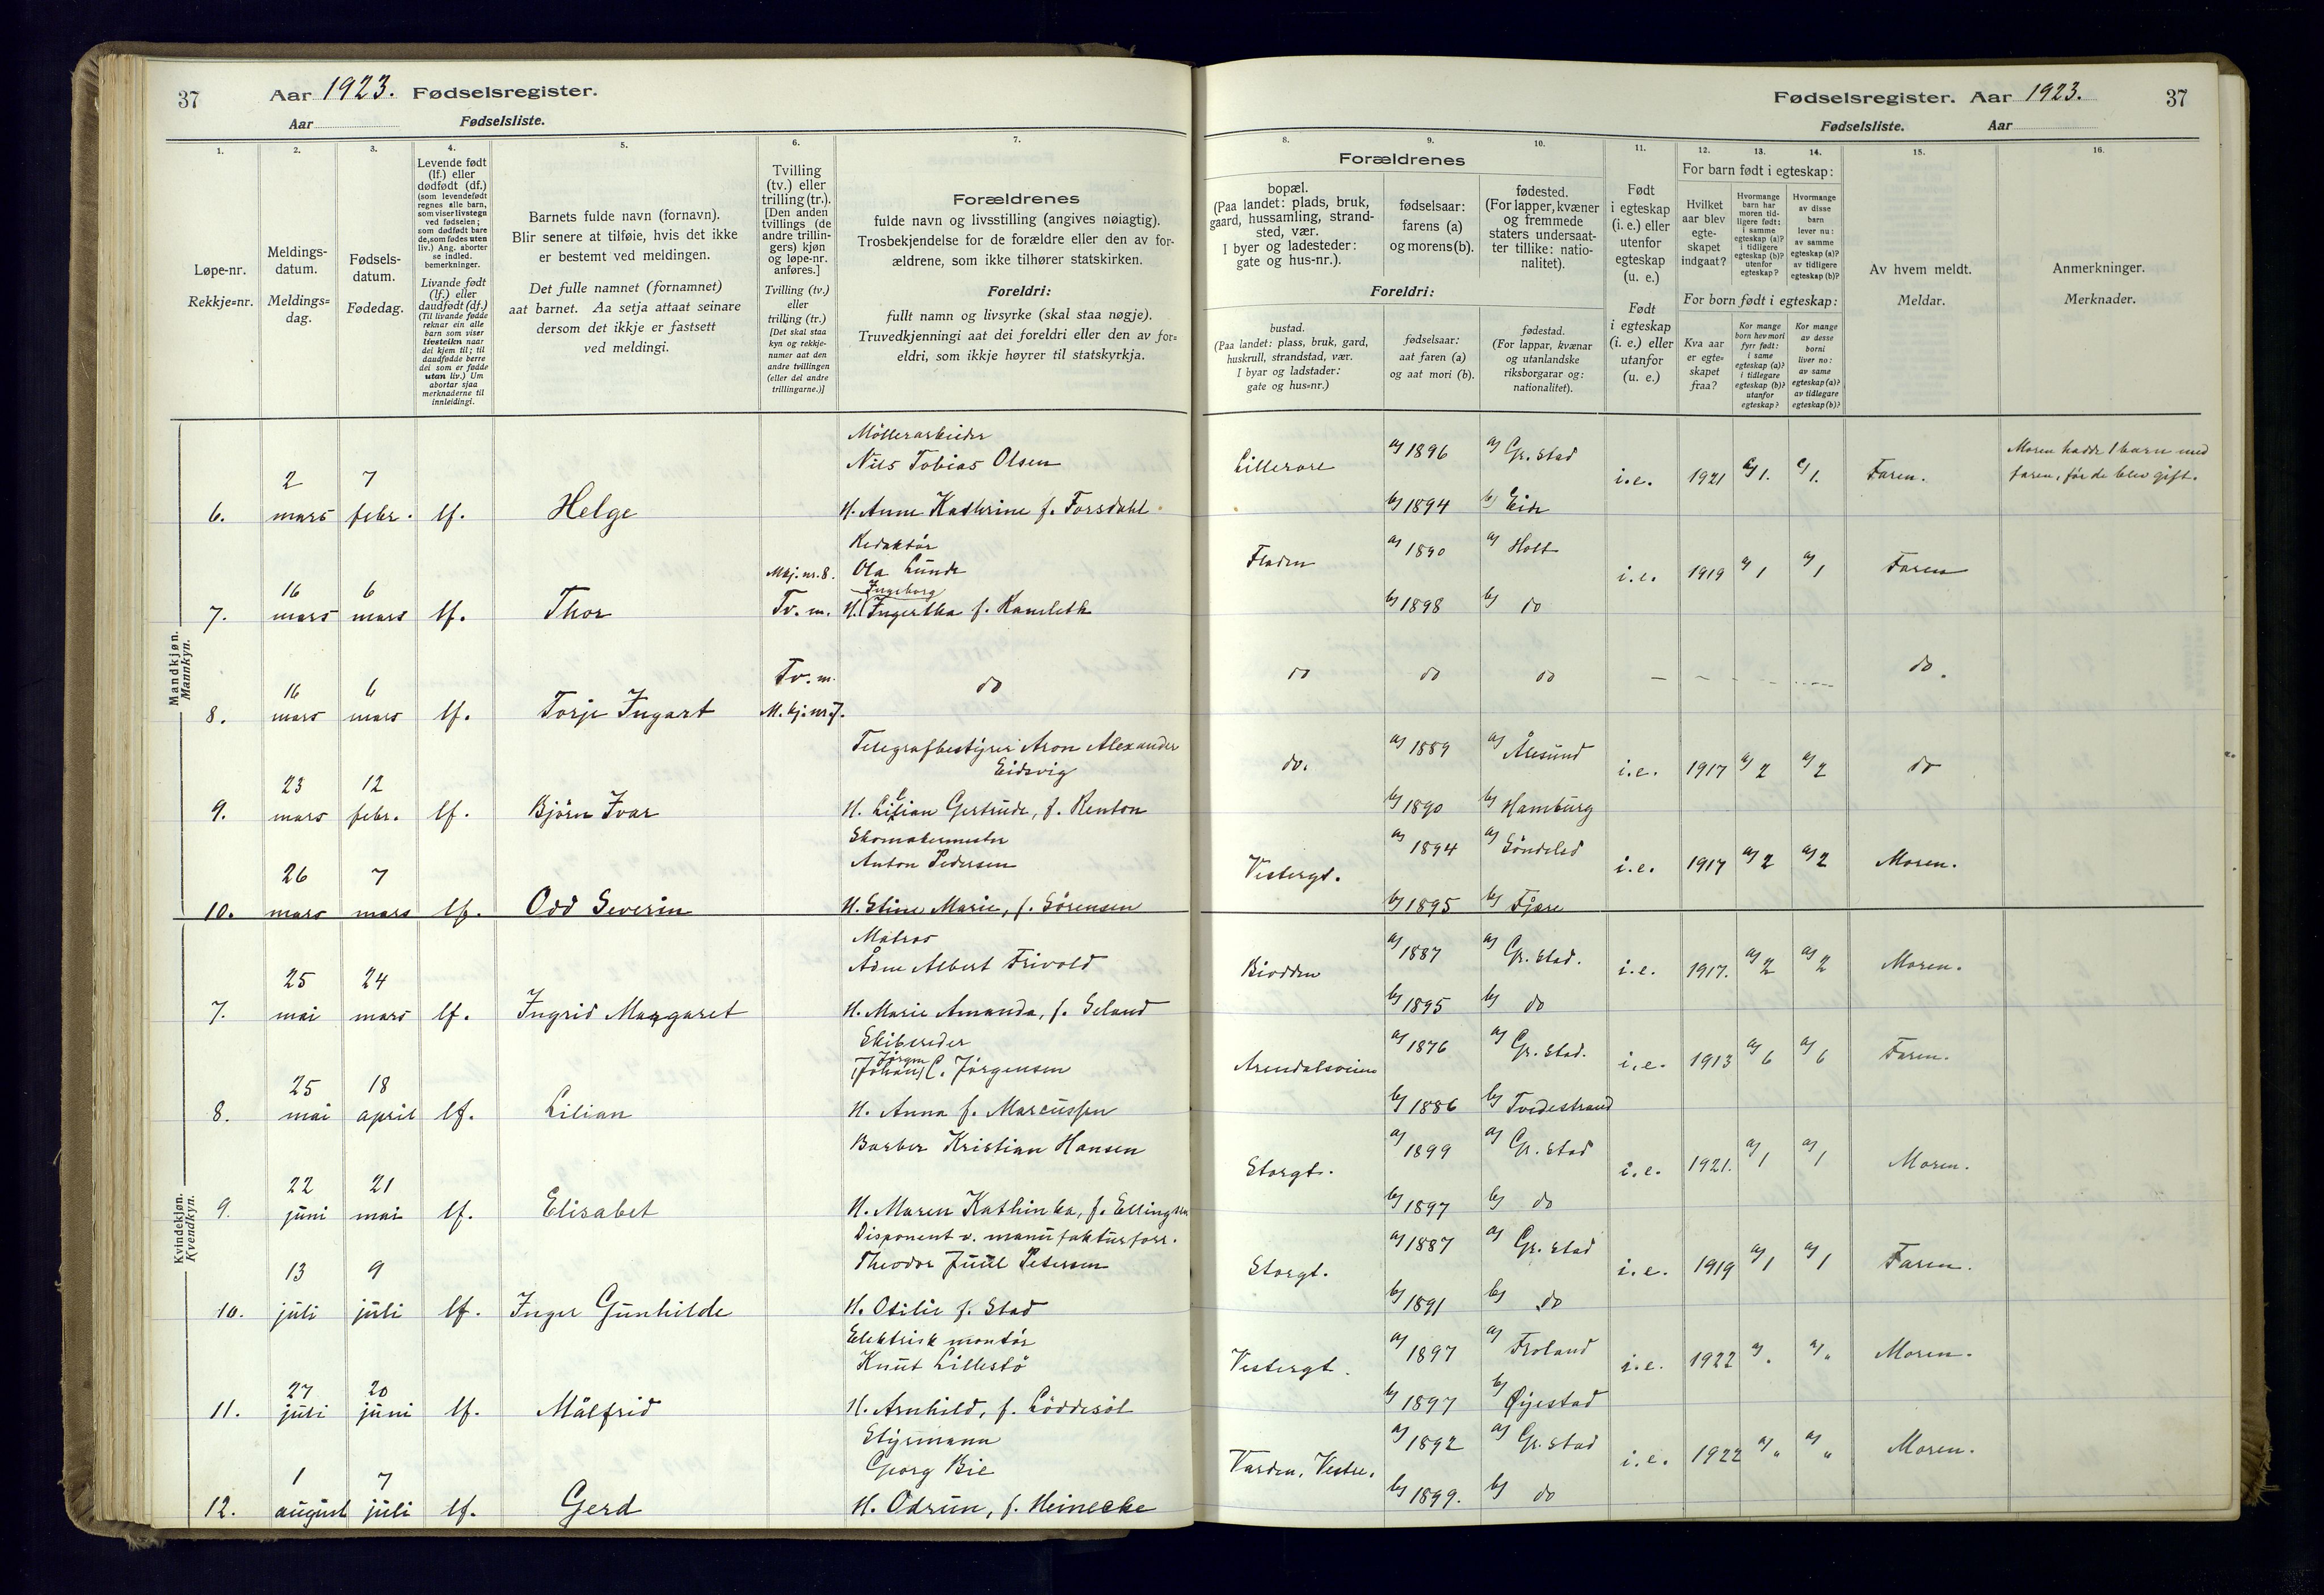 37 Aar 1923. Fødselsregister.
Aar Fødselsliste.
1.
Løpe-nr.
Rekkje=nr.
2.
Meldings-
datum.
Meldings=
dag.
3.
Fødsels-
datum.
Fødedag.
4.
Levende født
(lf.) eller
dødfødt (df.)
(som levendefødt
regnes alle barn,
som viser livstegn
ved fødselen;
som dødfødt bare
de, som fødes uten
liv.) Ang. aborter
se indled.
bemerkninger.
Livande født
(lf.) eller
daudfødt (df.)
(Til livande fødde
reknar ein alle
barn som viser
livsteikn naar
dei kjem til; til
daudfødde berre
dei som er fødde
utan liv.) Um
abortar sjaa
merknaderne til
innleidingi.
5.
Barnets fulde navn (fornavn).
Blir senere at tilføie, hvis det ikke
er bestemt ved meldingen.
Det fulle namnet (fornamnet)
aat barnet. Aa setja attaat seinare
dersom det ikkje er fastsett
ved meldingi.
6.
Tvilling
(tv.) eller
trilling (tr.).
[Den anden
tvillings (de
andre trillin-
gers) kjøn
og løpe-nr.
anføres.]
Tvilling (tv.)
eller
trilling (tr.)
[Det skal staa
kyn og rekkje-
numer aat den
andre tvillingen
(eller dei andre
trillingarne.)]
7.
Forældrenes
fulde navn og livsstilling (angives nøiagtig).
Trosbekjendelse for de forældre eller den av for-
ældrene, som ikke tilhører statskirken.
Foreldri:
fullt namn og livsyrke (skal staa nøgje).
Truvedkjenningi aat dei foreldri eller den av for=
eldri, som ikkje høyrer til statskyrkja.
Mandkjøn.
Mannkyn.
Møllerarbeider
Nils Tobias Olsen
2 7
6. mars febr. lf. Helge H. Anne Kathrine f. Forsdahl
Redaktør
Mkj. nr. 8. Ola Lunde
16 6 Ingeborg
7. mars mars lf. Thor Tv. m. H. (Ingertha f. Ramleth
16 6 Tv. m. do
8. mars mars lf. Torje Ingart M. kj. nr. 7.
Telegrafbestyrer Aron Alexander
Eidsvig
23 12
9. mars febr. lf. Bjørn Ivar H. Lilian Gertrude, f. Renton
Skomakermester
Anton Pedersen
26 7
10. mars mars lf. Odd Severin H. Stine Marie, f. Sörensen
Kvindekjøn.
Kvendkyn.
Matros
Arne Albert Frivold
25 24
7. mai mars lf. Ingrid Margaret H. Marie Amanda, f. Seland
Skibsreder
Jørgen
(Johan) C. Jørgensen
25 18
8. mai april lf. Lilian H. Anna f. Marcussen
Barber Kristian Hansen
22 21
9. juni mai lf. Elisabet H. Maren Kathinka, f. Ellingsen
Disponent v. manufakturforr.
Theodor Juul Petersen
13 9
10. juli juli lf. Inger Gunhilde H. Otilie f. Stad
Elektrisk montør
Knut Lillestö
27 20
11. juli juni lf. Målfrid H. Arnhild, f. Löddesöl
Styrmann
Georg Bie
1 7
12. august juli lf. Gerd H. Odrun, f. Heinecke
Fødselsregister. Aar 1923. 37
Fødselsliste. Aar
8.
Forældrenes
bopæl.
(Paa landet: plads, bruk,
gaard, hussamling, strand-
sted, vær.
I byer og ladesteder:
gate og hus-nr.).
Foreldri:
bustad.
(Paa landet: plass, bruk, gard,
huskrull, strandstad, vær.
I byar og ladstader:
gate og hus=nr.)
9.
fødselsaar:
farens (a)
og morens (b).
fødselsaar:
aat faren (a)
og aat mori (b).
10.
fødested.
(For lapper, kvæner
og fremmede
staters undersaat-
ter tillike: natio-
nalitet).
fødestad.
(For lappar, kvænar
og utanlandske
riksborgarar og:
nationalitet).
11.
Født
i egteskap
(i. e.) eller
utenfor
egteskap
(u. e.)
Født
i egteskap
(i. e.) eller
utanfor
(u. e.)
12. 13. 14.
For barn født i egteskap:
Hvilket
aar blev
egte-
skapet
indgaat?
Hvormange
barn har
moren tid-
ligere født:
i samme
egteskap (a)?
i tidligere
egteskap (b)?
utenfor
egteskap?
Hvormange
av disse
barn
lever nu:
av samme
egteskap (a)?
av tidligere
egteskap (b)?
For born født i egteskap:
Kva aar
er egte=
skapet
fraa?
Kor mange
born hev mori
fyrr født:
i same
egteskap (a)?
i tidlegare
egteskap (b)?
utanfor
egteskap?
Kor mange
av desse
borni
liver no:
av same
egteskap (a)?
av tidlegare
egteskap (b)?
15.
Av hvem meldt.
Meldar.
16.
Anmerkninger.
Merknader.
a) 1896 a) Gr.stad Moren hadde 1 barn med
Lillerore i.e. 1921 1. 1. Faren. faren, før de blev gift.
b) 1894 b) Eide
a) 1890 a) Holt
Fladen i.e. 1919 a) 1 a) 1 Faren
b) 1898 b) do
do do do — do.
a) 1889 a) Ålesund
do. i.e. 1917 a) 2 a) 2 do
b) 1890 b) Hamburg
a) 1894 a) Söndeled
Vestergt. i.e. 1917 a) 2 a) 2 Moren.
b) 1895 b) Fjære
a) 1887 a) Gr.stad.
Biodden i.e. 1917. a) 2 a) 2 Moren.
b) 1895 b) do
a) 1876 a) Gr.stad.
Arendalsveien i.e. 1913 a) 6 a) 6 Faren.
b) 1886 b) Tvedestrand
a) 1899 a) Gr.stad
Storgt. i.e. 1921. a) 1 a) 1 Moren.
b) 1897 b) do
a) 1887 a) Gr.stad
Storgt. i.e. 1919 a) 1 a) 1 Faren.
b) 1891 b) do
a) 1897 a) Froland
Vestergt. i.e. 1922 a) " a) " Moren.
b) 1897 b) Øyestad
a) 1892 a) Gr.stad
Varden, Vestre. i.e. 1922 a) " a) " Moren.
b) 1899. b) do